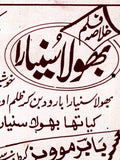 خلاصہ فلم
بھولا سنیارا
بھولا سنیارا بارود بن کر ظلم اور
کیا تھا بھولا سنیار
بابر موویز